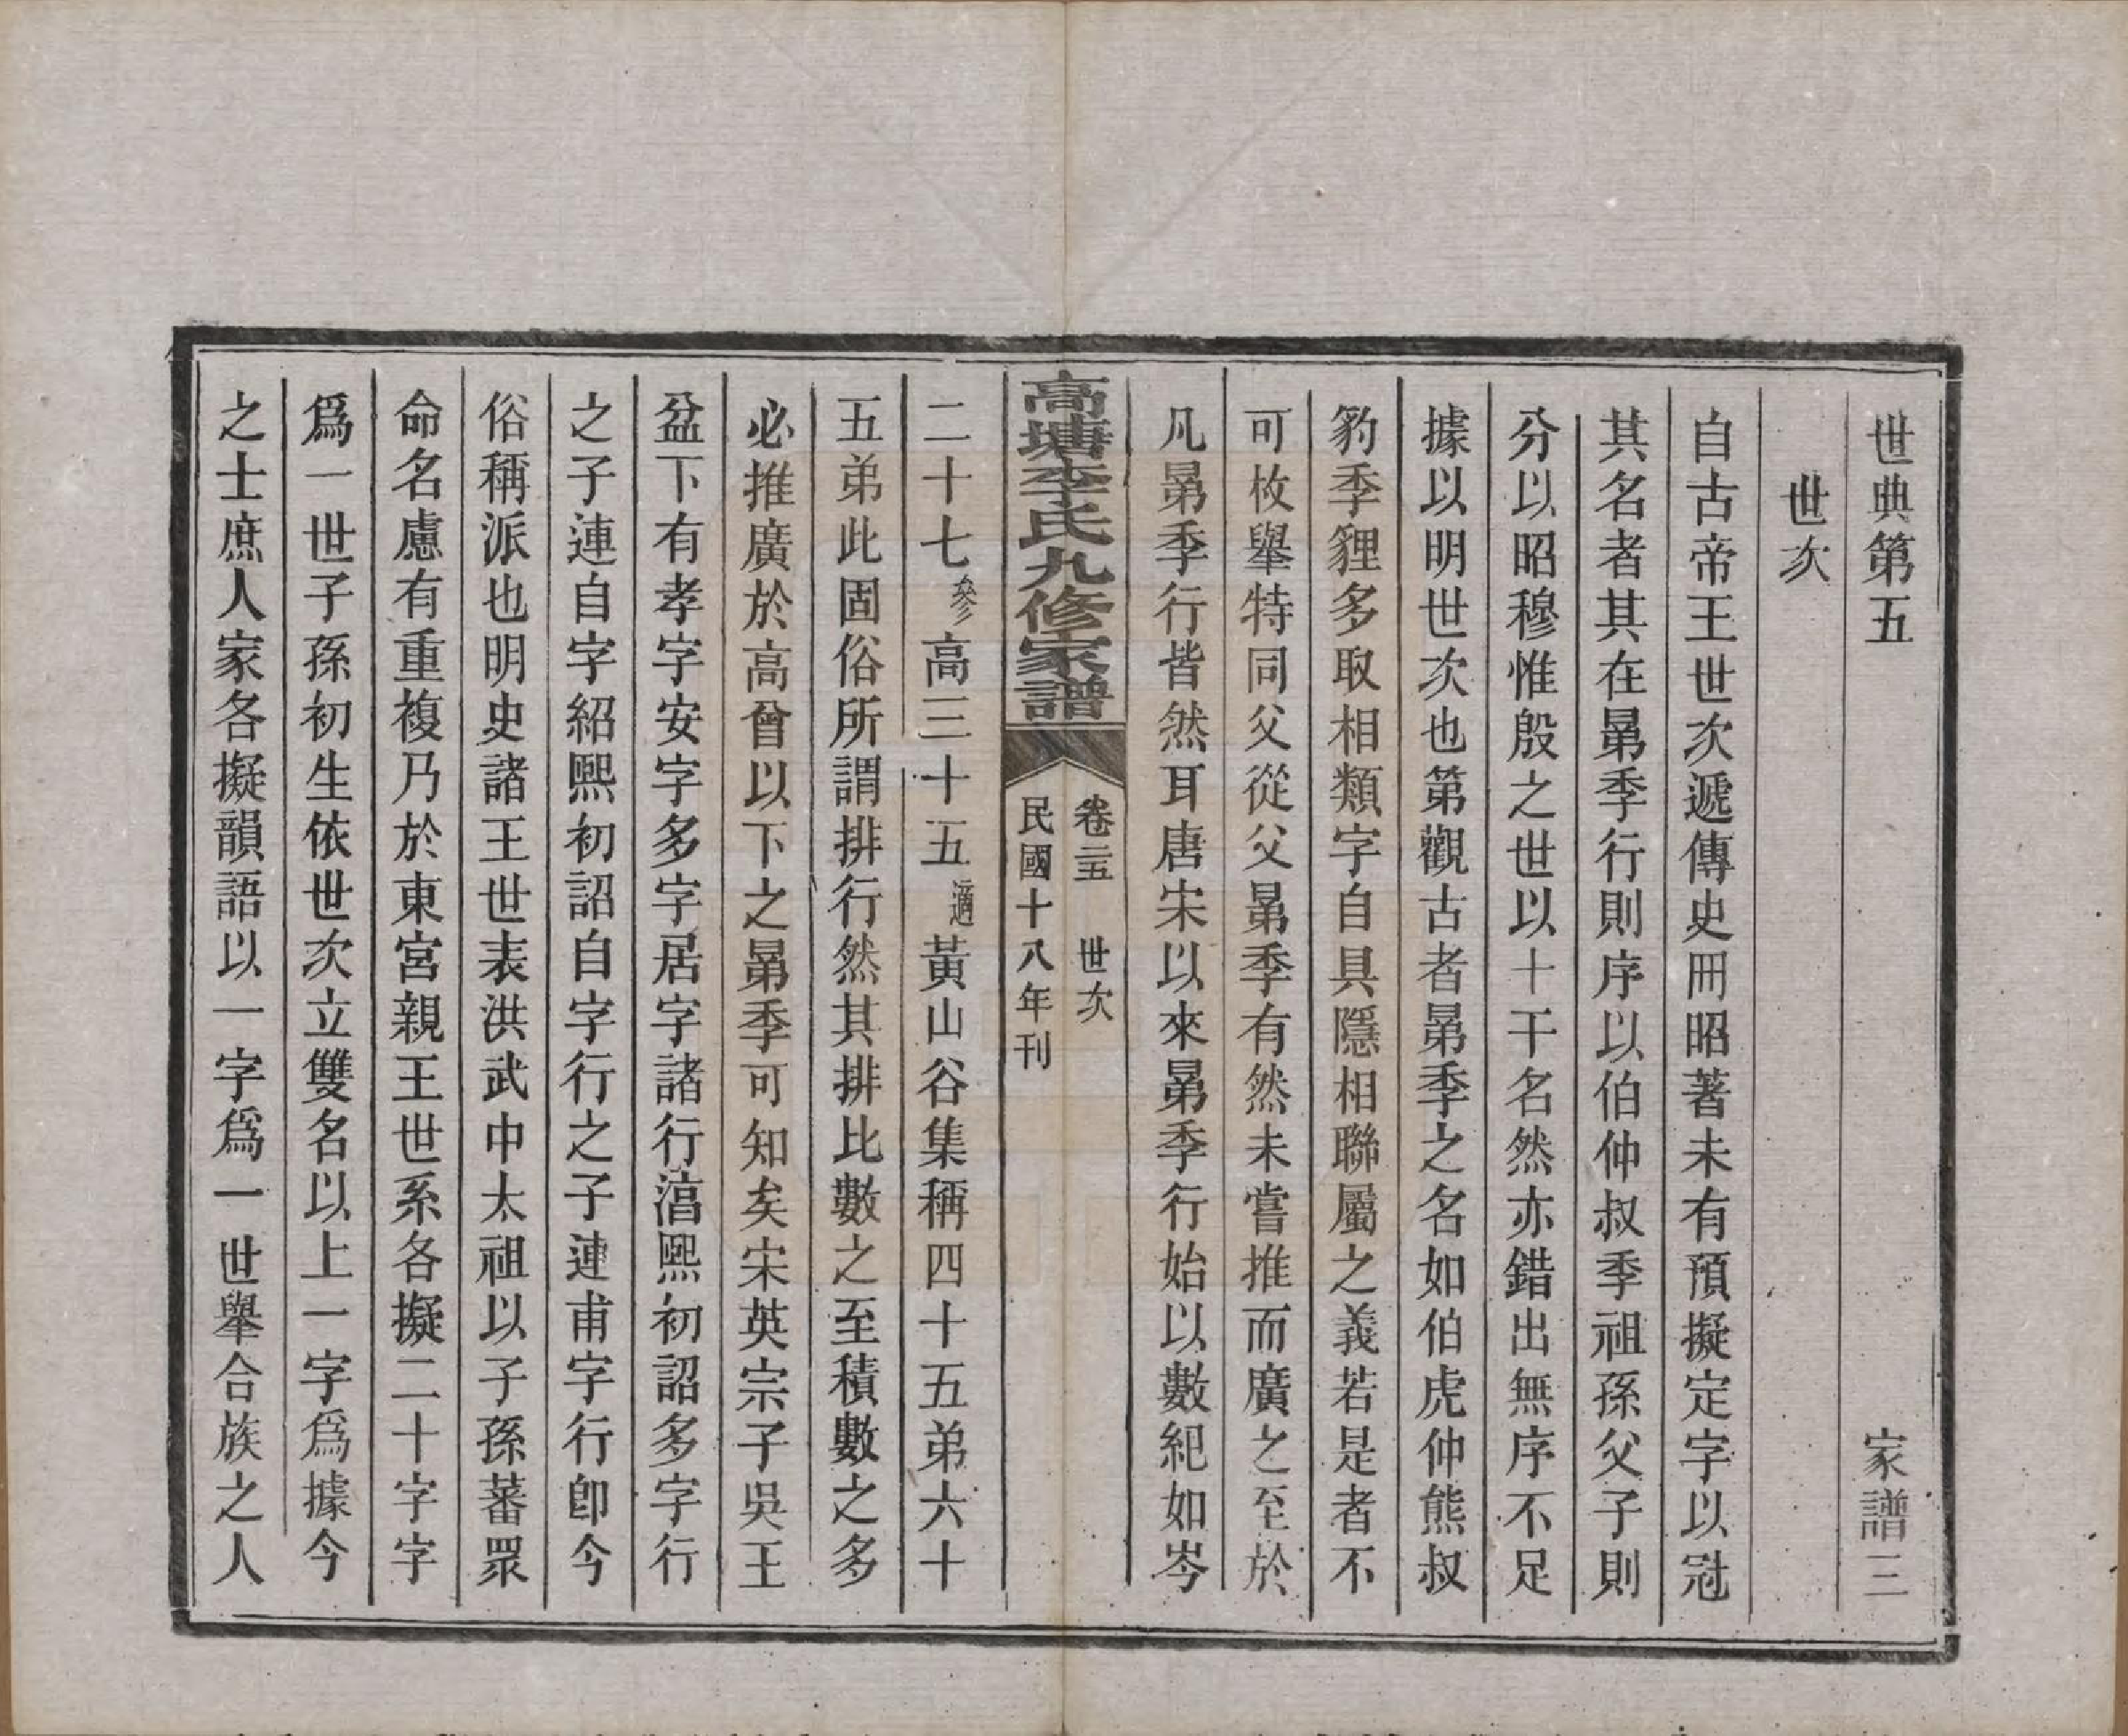 世典第五 家譜三
世次
自古帝王世次遞傳史冊昭著未有預擬定字以冠
其名者其在晜季行則序以伯仲叔季祖孫父子則
分以昭穆惟殷之世以十干名然亦錯出無序不足
據以明世次也第觀古者晜季之名如伯虎仲熊叔
豹季貍多取相類字自具隱相聯屬之義若是者不
可枚舉特同父從父晜季有然未嘗推而廣之至於
凡晜季行皆然耳唐宋以來晜季行始以數紀如岑
高塘李氏九修家譜
卷二五 世次
民國十八年刊
二十七參高三十五適黃山谷集稱四十五弟六十
五弟此固俗所謂排行然其排比數之至積數之多
必推廣於高曾以下之晜季可知矣宋英宗子吳王
盆下有孝字安字多字居字諸行湻熙初詔多字行
之子連自字紹熙初詔自字行之子連甫字行卽今
俗稱派也明史諸王世表洪武中太祖以子孫蕃眾
命名慮有重複乃於東宮親王世系各擬二十字字
爲一世子孫初生依世次立雙名以上一字爲據今
之士庶人家各擬韻語以一字爲一世舉合族之人